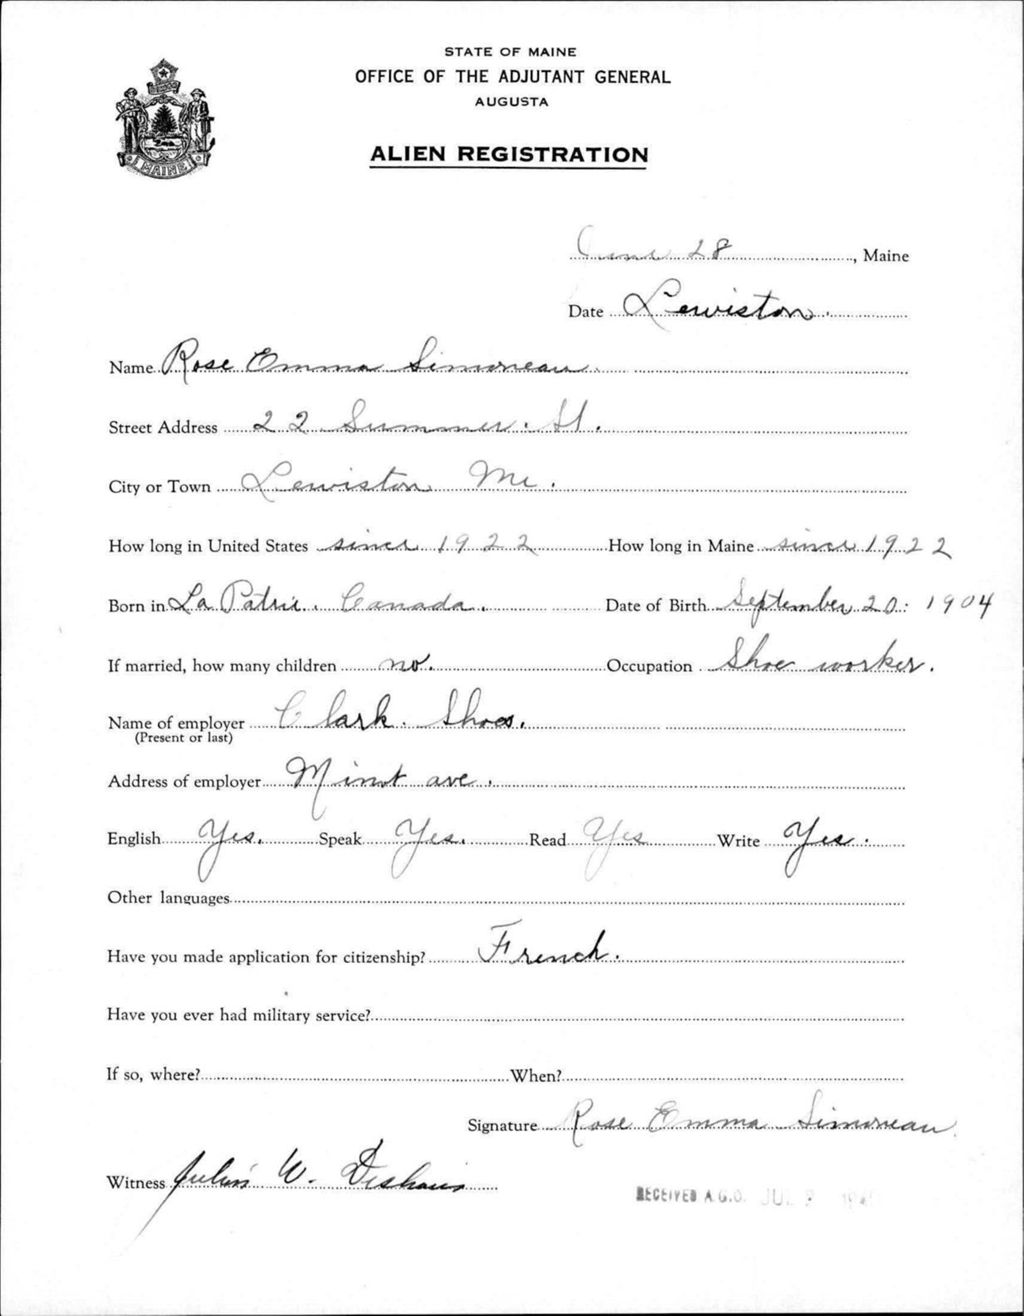 STATE OF MAINE
OFFICE OF THE ADJUTANT GENERAL
AUGUSTA
ALIEN REGISTRATION
MAINE
June 28, Maine
Date Lewiston.
Name Rose Emma Simoneau.
Street Address 22 Summer. St.
City or Town Lewiston Me.
How long in United States since 1922 How long in Maine since 1922
Born in La Patrie. Canada. Date of Birth September 20. 1904
If married, how many children no. Occupation Shoe worker.
Name of employer Clark. Shoes.
(Present or last)
Address of employer Minot ave.
English Yes. Speak Yes. Read Yes Write Yes.
Other languages
Have you made application for citizenship? French.
Have you ever had military service?
If so, where? When?
Signature Rose Emma Simoneau
Witness W. Deshaies
RECEIVED A.G.O. JUL